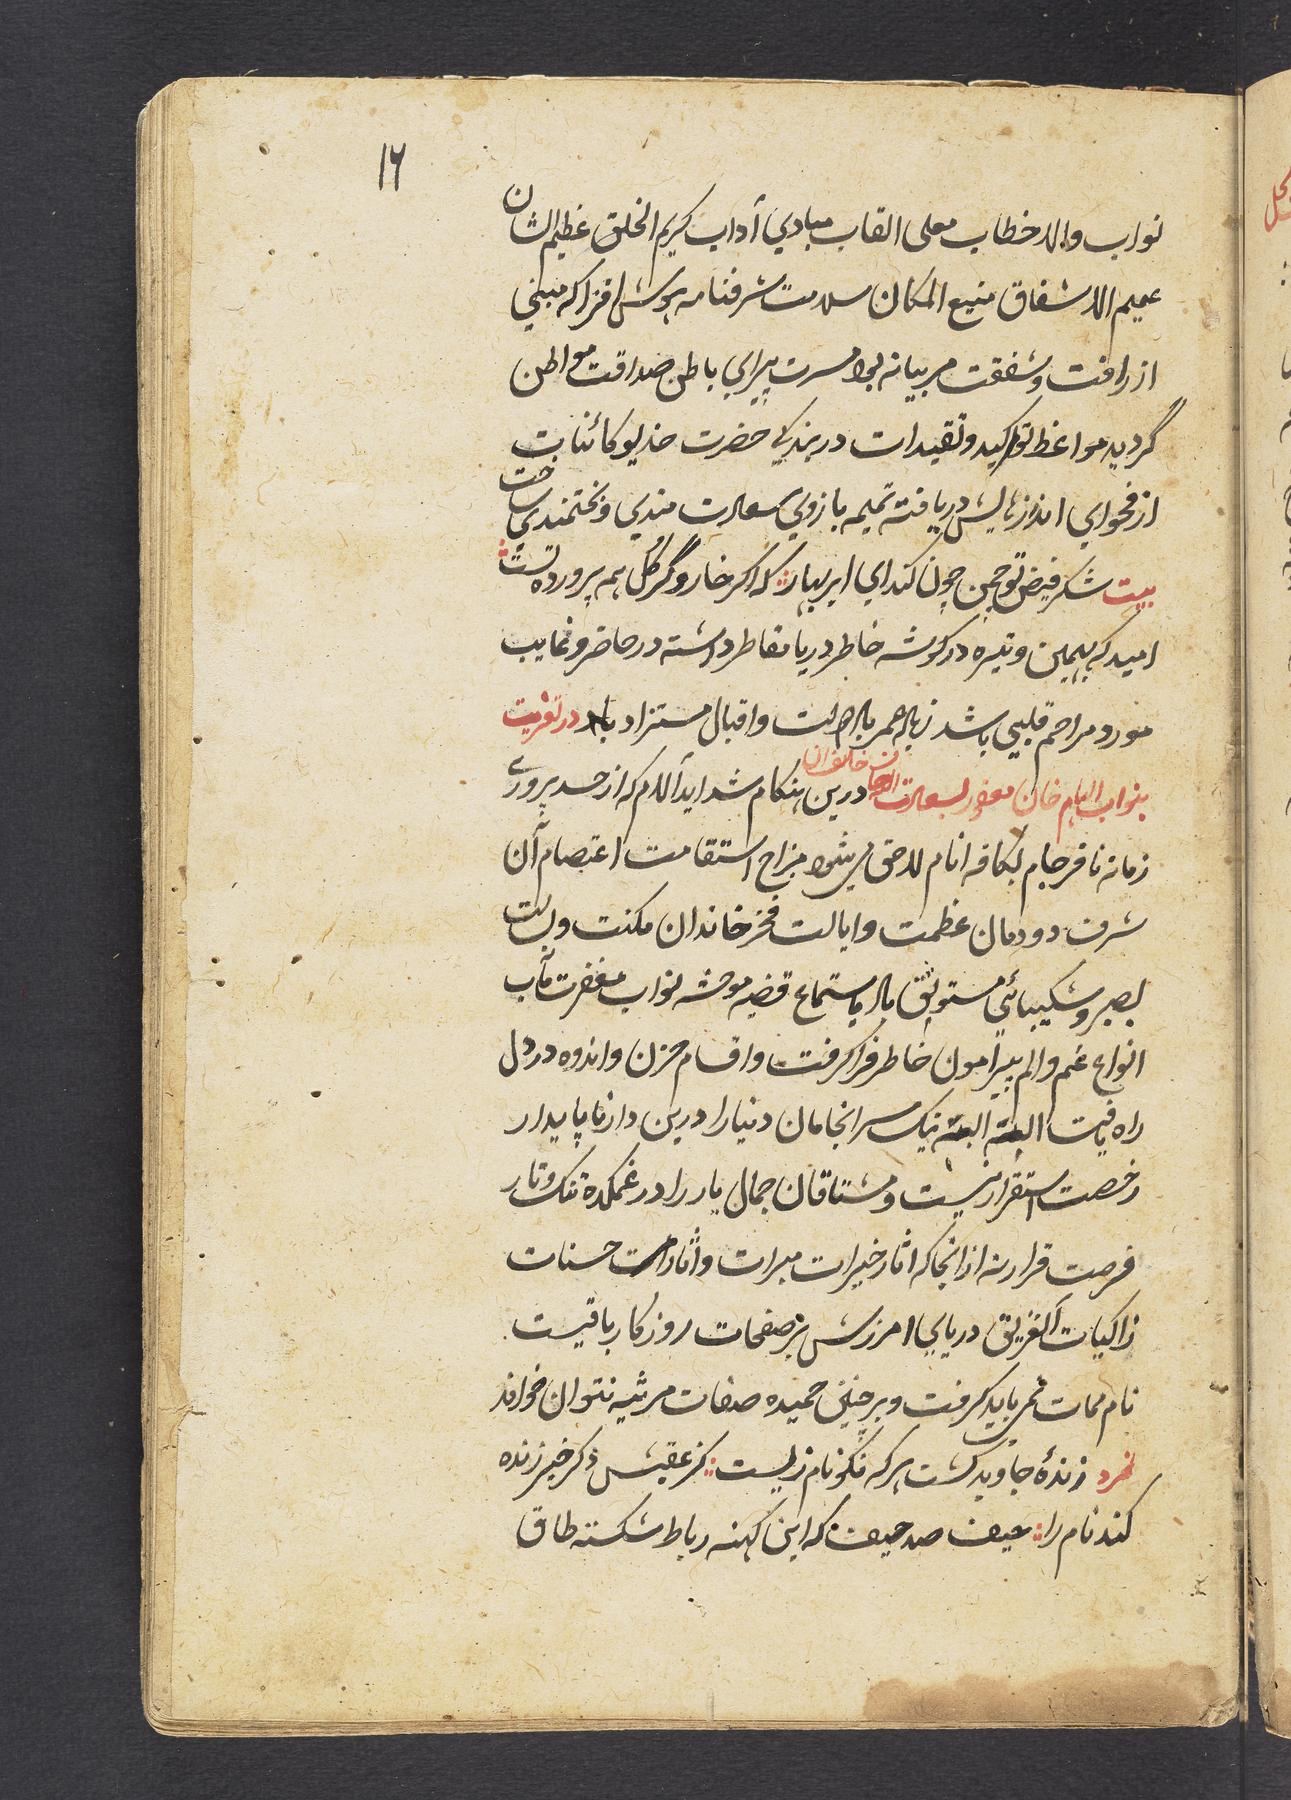 ١٦
نواب والا خطاب معلی القاب مبادي آداب کریم الخلق عظیم الشان
عمیم الاشفاق منیع المکان سلامت شرفنامه هوش افزا که مبني
از رافت و شفقت مربیانه بود مسرت پیرای باطن صداقت مواطن
گردید مواعظ تواکید و تقیدات در بندگی حضرت خدیو کائنات
از فحوای اندازهایش دریافته تمیمه بازوی سعادت مندي و بختمندي ساخت
بیت شکر فیض تو چمن چون کند ای ابر بهار که اگر خار و گر گل همه پرورده تست
امید که بهمین وتیره در گوشه خاطر دریا مقاطر داشته در حاضر و غایب
مورد مراحم قلبیی باشد زیاده عمر باد دولت و اقبال مستزاد باد در تعزیت
بنواب الهام خان مغفور بسعادت الله خان خلف ان درین هنگام شداید آلام که از حسد پروری
زمانه نافرجام بکافه انام لاحق می شود مزاج استقامت اعتصام آن
شرف دودمان عظمت و ایالت فخر خاندان مکنت و بسالت
بصبر و شکیبائي مستوثق باد باستماع قضیه موحشه نواب مغفرت مآب
انواع غم و الم پیرامون خاطر فرا گرفت و اقسام حزن و اندوه در دل
راه یافت البته البته نیک سرانجامان دنیا را درین دار ناپایدار
رخصت استقرار نیست و مشتاقان جمال یار را در غمکده تنگ و تار
فرصت قرار نه از انجا که اثار خیرات مبرات و آثار است حسنات
زاکیات آن غریق دریای امرزش بر صفحات روزکار باقیست
نام ممات نمی باید گرفت و بر چنین حمیده صفات مرثیه نتوان خواند
فرد زندهٔ جاوید گشت هر که نکو نام زیست کز عقبش ذکر خیر زنده
کند نام را حیف صد حیف که این کهنه رباط شکسته طاق